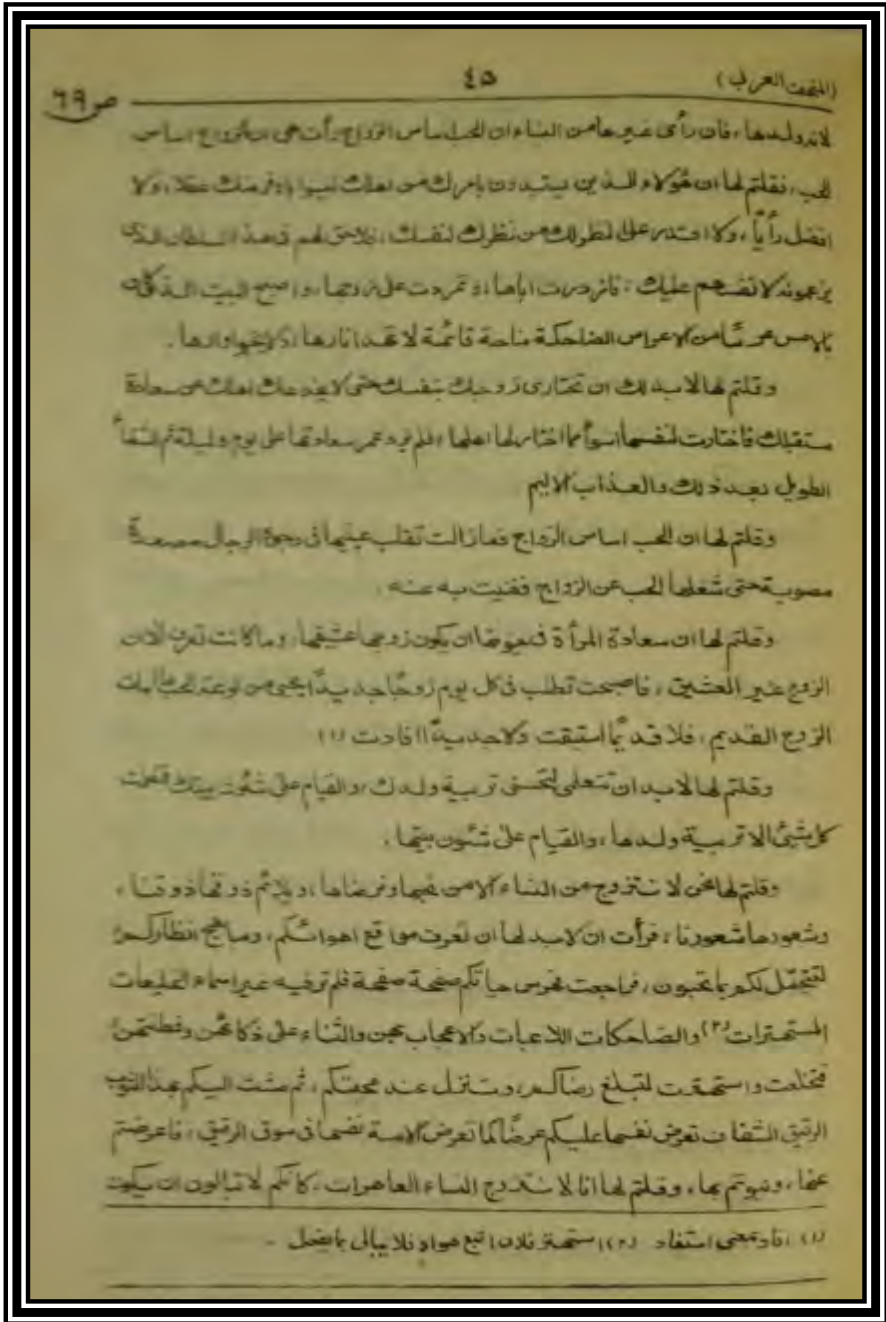 (المنتخب العربي)
٤٥
ص ٦٩
لاتدولدها، فان رأى غيرها من النساء ان الحب اساس الزواج رأت هى ان الزواج اساس
الحب، فقلتم لها ان هؤلاء الذين يستبدون بامرك من اهلك ليسوا باوفر منك عقلا، ولا
افضل رأيًا، ولا اقدر على النظر لك من نظرك لنفسك، فلاحق لهم فى هذا السلطان الذى
يزعمونه لانفسهم عليك، فازدرت اباها، وتمردت على زوجها، واصبح البيت الذى كان
بالامس عرسًا من الاعراس الضاحكة مناحة قائمة لا تهدأ نارها، ولا يخبو اوارها.
وقلتم لها لابد لك ان تختارى زوجك بنفسك حتى لا يخدعك اهلك عن سعادة
مستقبلك فاختارت لنفسها اسوأ مما اختار لها اهلها، فلم يزد عمر سعادتها على يوم وليلة ثم الشقاء
الطويل بعد ذلك والعذاب الاليم
وقلتم لها ان الحب اساس الزواج فمازالت تقلب عينيها فى وجوه الرجال مصعدة
مصوبة حتى شغلها الحب عن الزواج فغنيت به عنه.
وقلتم لها ان سعادة المرأة فى حياتها ان يكون زوجها عشيقها، وماكانت تعرف الا ان
الزوج غير العشيق، فاصبحت تطلب فى كل يوم زوجًا جديدًا يحيى من لوعة الحب ما امات
الزوج القديم، فلا قديمًا استبقت ولا جديدًا افادت (١)
وقلتم لها لابد ان تتعلمى لتحسنى تربية ولدك، والقيام على شئون بيتك فتعلمت
كل شيئ الا تربية ولدها، والقيام على شئون بيتها.
وقلتم لها نحن لا نتزوج من النساء الا من نحبها ونرضاها، ويلائم ذوقها ذوقنا،
وشعورها شعورنا، فرأت ان لابد لها ان تعرف مواقع اهوائكم، ومباهج انظاركم
لتتجمل لكم بما تحبون، فراجعت فهرس حياتكم صفحة صفحة فلم ترفيه غير اسماء الخليعات
المستهترات (٢) والضاحكات اللاعبات والاعجاب بهن والثناء على ذكائهن وفطنتهن
فتخلعت واستهترت لتبلغ رضاكم، وتنزل عند محبتكم، ثم مشت اليكم بهذا الثوب
الرقيق الشفاف تعرض نفسها عليكم عرضًا كما تعرض الامة نفسها فى سوق الرقيق، فاعرضتم
عنها، ونبوتم بها، وقلتم لها انا لا نتزوج النساء العاهرات، كانكم لا تبالون ان يكون
(١) افاد بمعنى استفاد (٢) استهتر فلان اتبع هواه فلا يبالى بما يفعل -